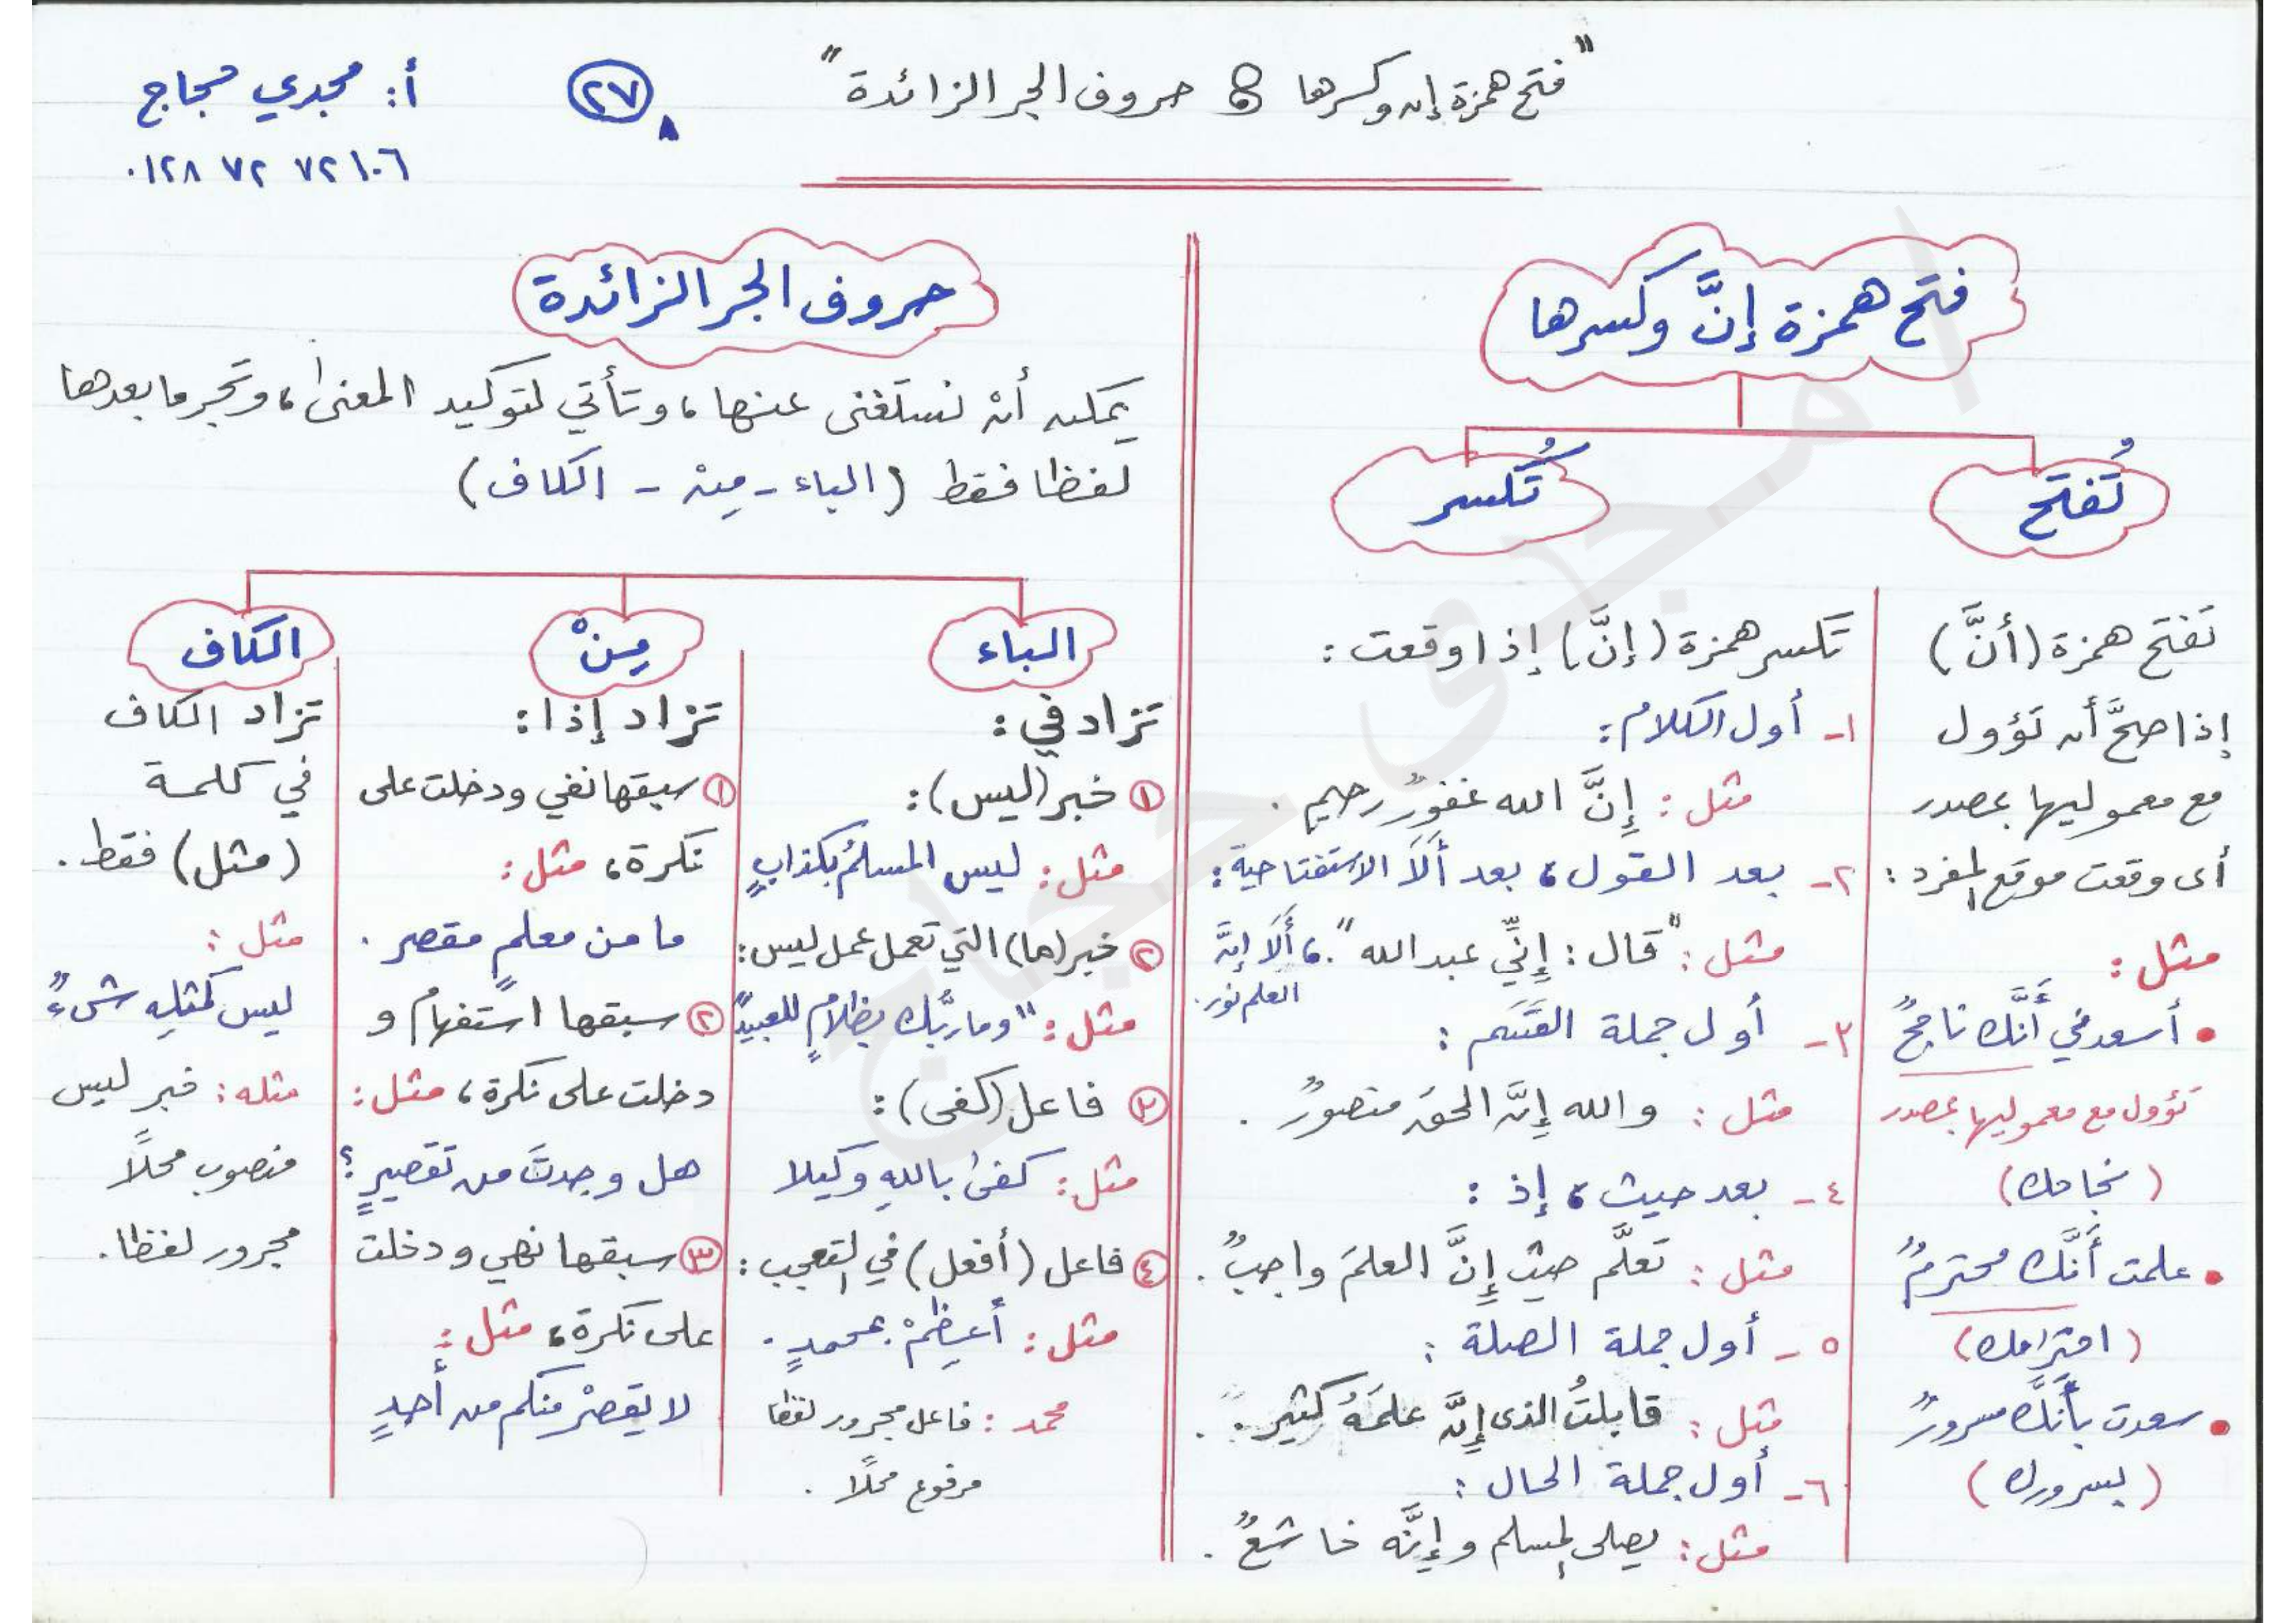 "فتح همزة إن وكسرها & حروف الجر الزائدة"
٢٧
أ: مجدي حجاج
٠١٢٨ ٧٢ ٧٢١٠٦
فتح همزة إنَّ وكسرها
تُفتح
تفتح همزة (أنَّ)
إذا صحَّ أن تؤول
مع معموليها بمصدر
أى وقعت موقع المفرد:
مثل:
• أسعدني أَنَّك ناجحٌ
تؤول مع معموليها بمصدر
(نجاحك)
• علمت أَنَّك محترمٌ
(احترامك)
• سعدت بأَنَّك مسرورٌ
(بسرورك)
تُكسر
تكسر همزة (إنَّ) إذا وقعت:
١- أول الكلام:
مثل: إِنَّ الله غفورٌ رحيم.
٢- بعد القول، بعد أَلَا الاستفتاحية:
مثل: "قال: إِنِّي عبد الله". ، أَلَا إنَّ
العلم نور.
٣- أول جملة القَسَم:
مثل: والله إِنَّ الحق منصورٌ.
٤- بعد حيث، إذ:
مثل: تعلَّم حيث إِنَّ العلمَ واجبٌ.
٥- أول جملة الصلة:
مثل: قابلتُ الذى إِنَّ علمَهُ كثير.
٦- أول جملة الحال:
مثل: يصلى المسلم وإِنَّه خاشعٌ.
حروف الجر الزائدة
يمكن أنْ نستغنى عنها، وتأتي لتوكيد المعنى، وتجر ما بعدها
لفظا فقط (الباء - مِنْ - الكاف)
الباء
تزاد في:
① خبر (ليس):
مثل: ليس المسلمُ بكذابٍ
② خبر (ما) التي تعمل عمل ليس:
مثل: "وما ربُّك بظلامٍ للعبيد"
③ فاعل (كفى):
مثل: كفى باللهِ وكيلا
④ فاعل (أفعل) في التعجب:
مثل: أَعظِمْ بمحمدٍ.
محمد: فاعل مجرور لفظا
مرفوع محلًا.
مِنْ
تزاد إذا:
① سبقها نفي ودخلت على
نكرة، مثل:
ما من معلمٍ مقصر.
② سبقها استفهام و
دخلت على نكرة، مثل:
هل وجدتَ من تقصيرٍ؟
③ سبقها نهي ودخلت
على نكرة، مثل:
لا يقصرْ منكم من أحدٍ
الكاف
تزاد الكاف
في كلمة
(مثل) فقط.
مثل:
ليس كمثلِه شىءٌ"
مثله: خبر ليس
منصوب محلًا
مجرور لفظا.
أ/ مجدى حجاج